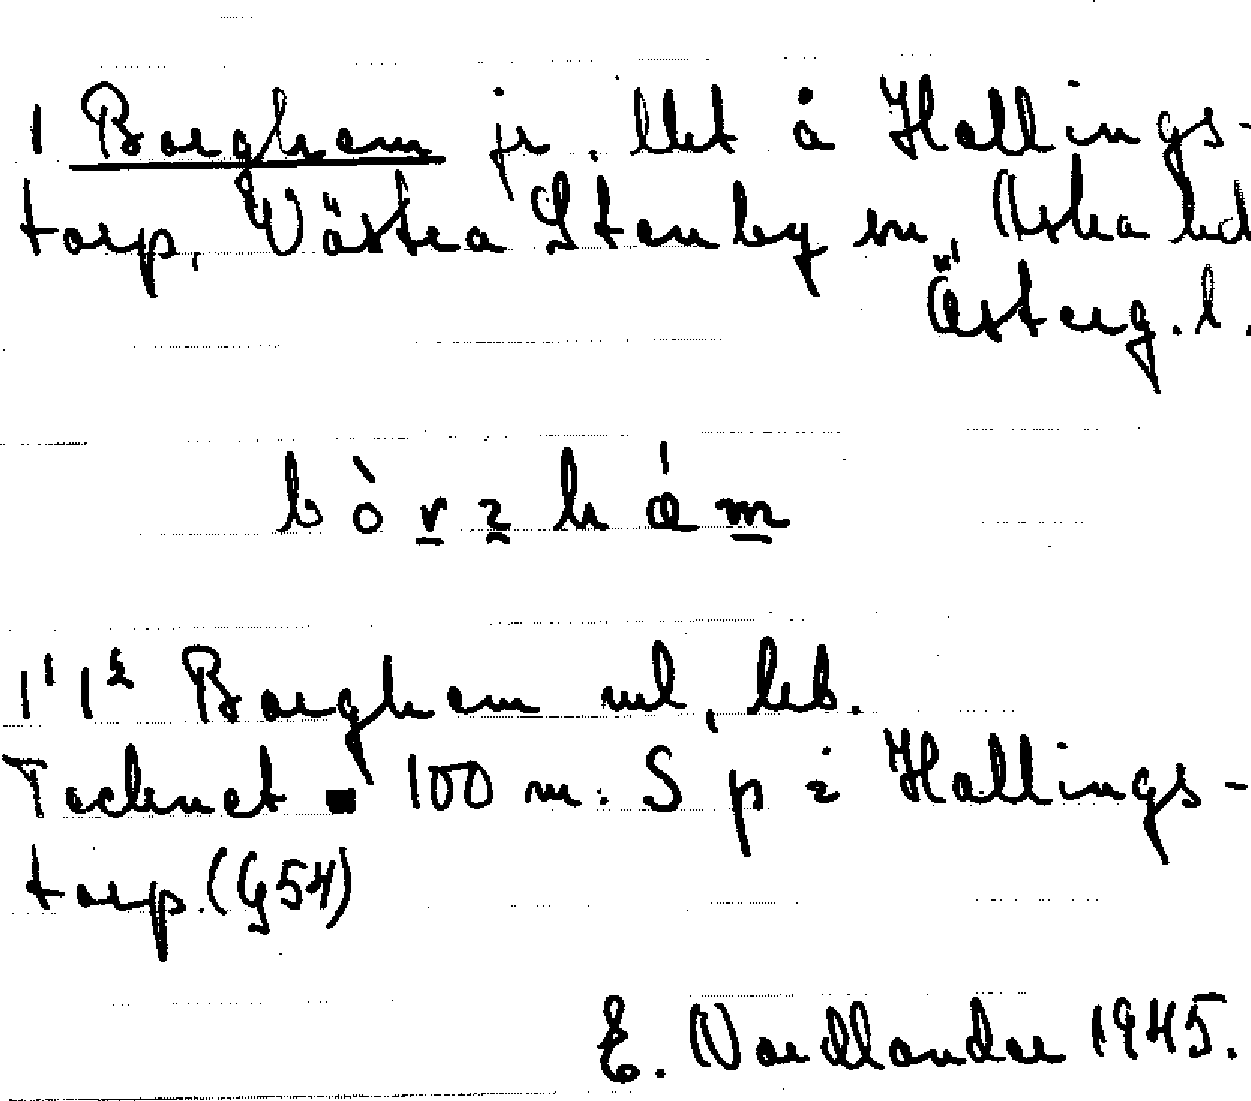 1 Borghem jr. llet å Hallings-
torp, Västra Stenby sn, Aska hd
Österg. l.
b ò r z h á m
1¹ 1² Borghem ml, leb.
Tecknet 100 m. S p i Hallings-
torp. (G54)
E. Nordlander 1945.